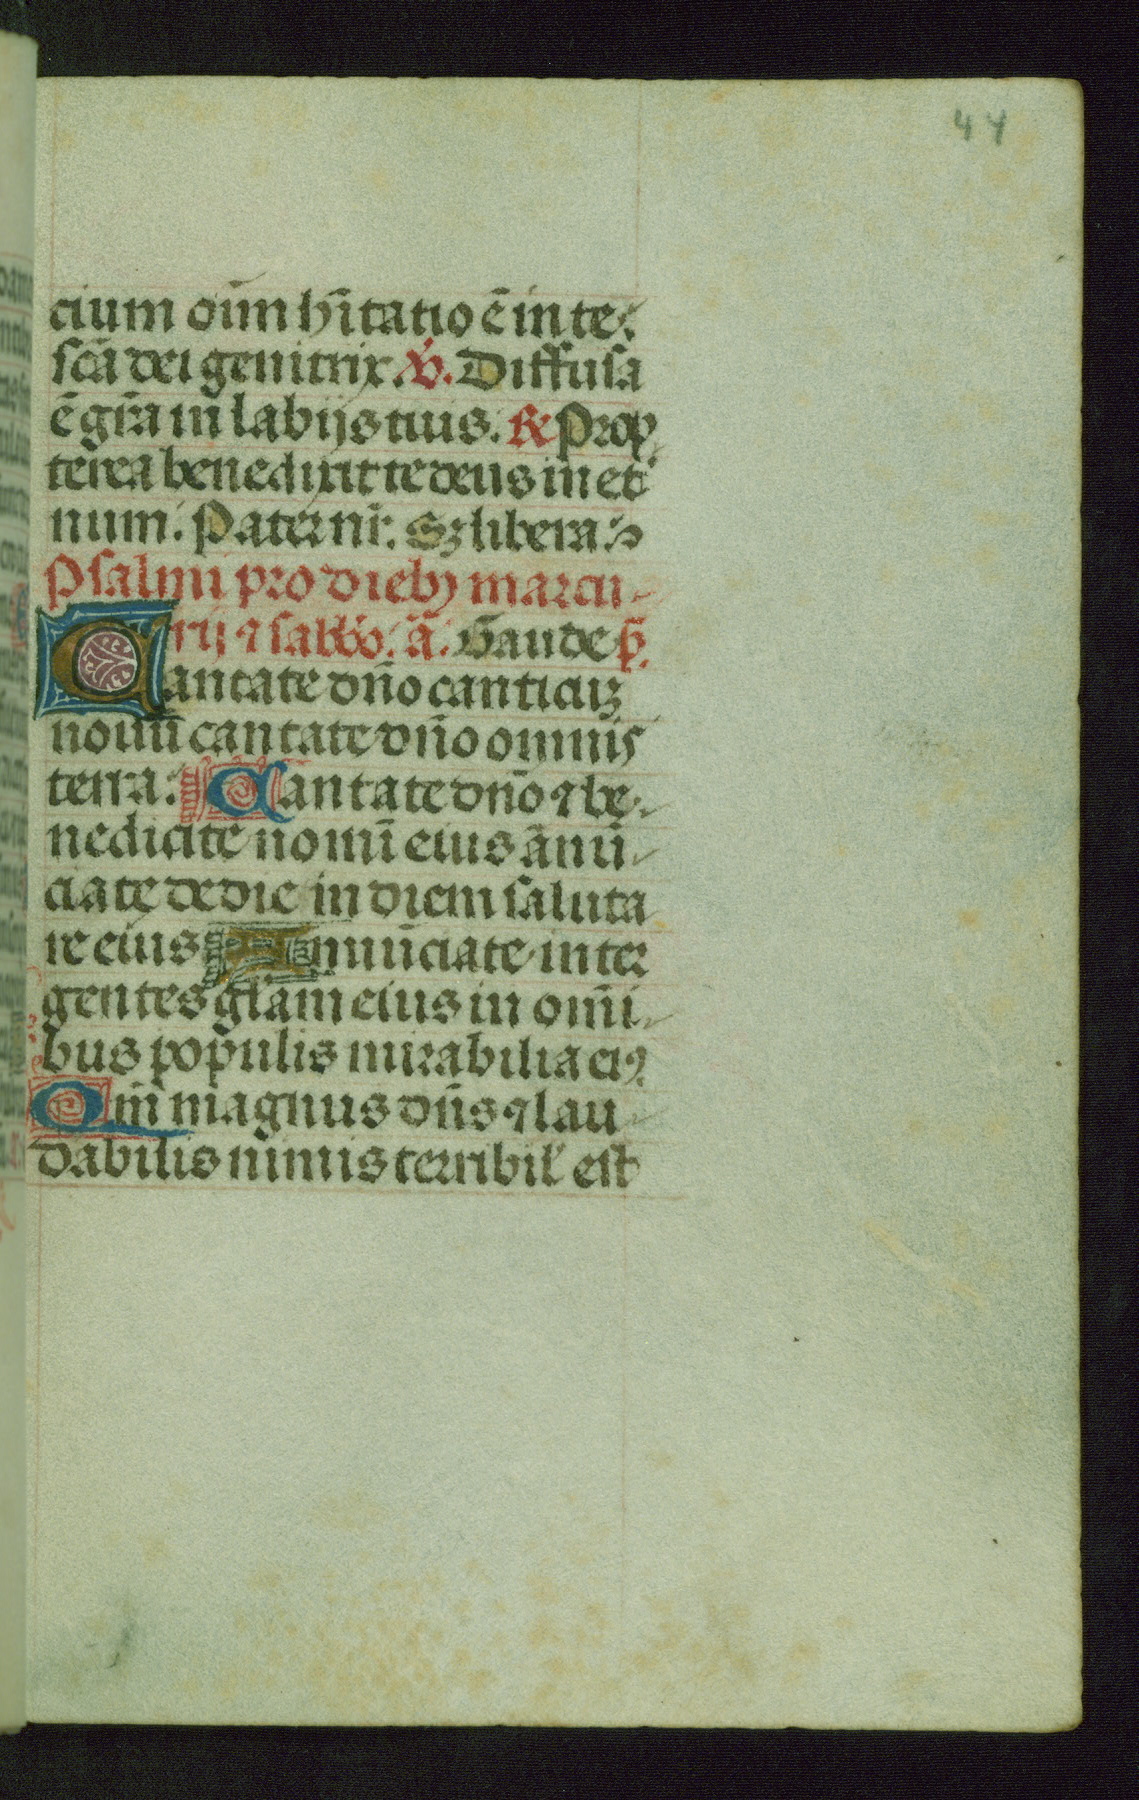 44
cium oīm h̄itatio ē in te.
scā dei genitrix. ℣. Diffusa
ē gr̄a in labijs tuis. ℟ Prop
terea benedixit te deus in et̄
num. Pater nr̄. Sȝ libera.
Psalmi pro diebȝ marcu
rij ⁊ sabb̄o. ā. Gaude. p̄s.
Cantate dn̄o canticuȝ
nouū cantate dn̄o omnis
terra. Cantate dn̄o ⁊ be
nedicite nomī eius ānū
ciate de die in diem saluta
re eius Annūciate inter
gentes gl̄am eius in omī
bus populis mirabilia eiꝰ
Qm̄ magnus dn̄s ⁊ lau
dabilis nimis terribil' est